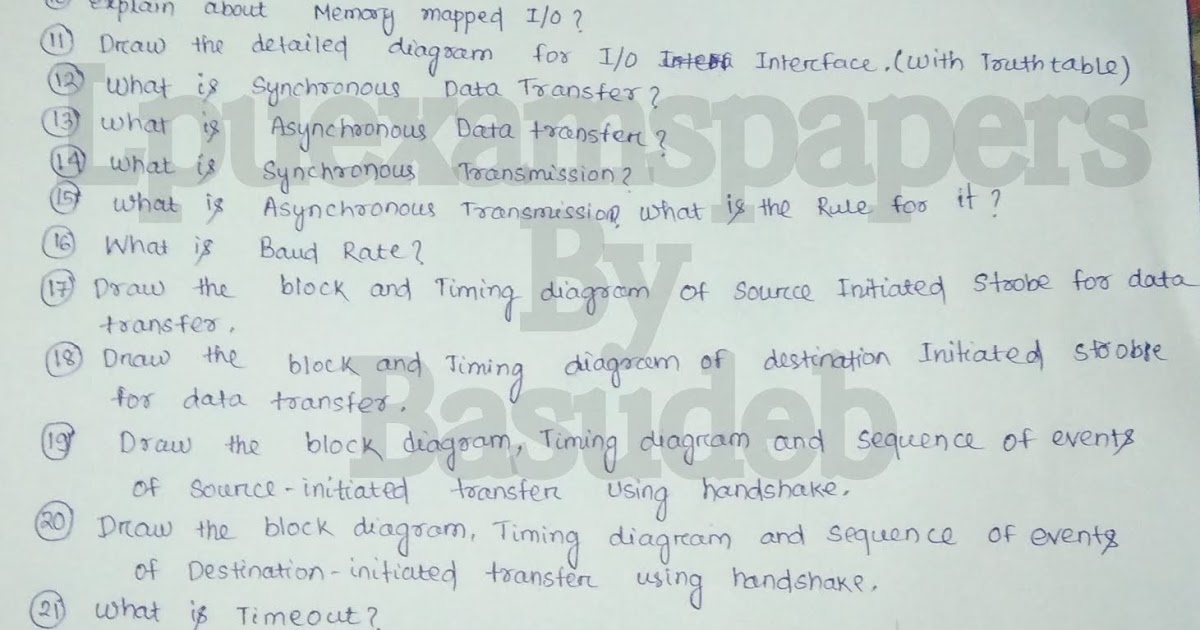 10 Explain about Memory mapped I/O?
11 Draw the detailed diagram for I/O Interface. (with Truth table)
12 What is Synchronous Data Transfer?
13 What is Asynchronous Data transfer?
14 What is Synchronous Transmission?
15 What is Asynchronous Transmission, what is the Rule for it?
16 What is Baud Rate?
17 Draw the block and Timing diagram of source Initiated Strobe for data
transfer.
18 Draw the block and Timing diagram of destination Initiated strobe
for data transfer.
19 Draw the block diagram, Timing diagram and sequence of events
of source-initiated transfer using handshake.
20 Draw the block diagram, Timing diagram and sequence of events
of Destination-initiated transfer using handshake.
21 What is Timeout?
Lpuexamspapers
By
Basudeb